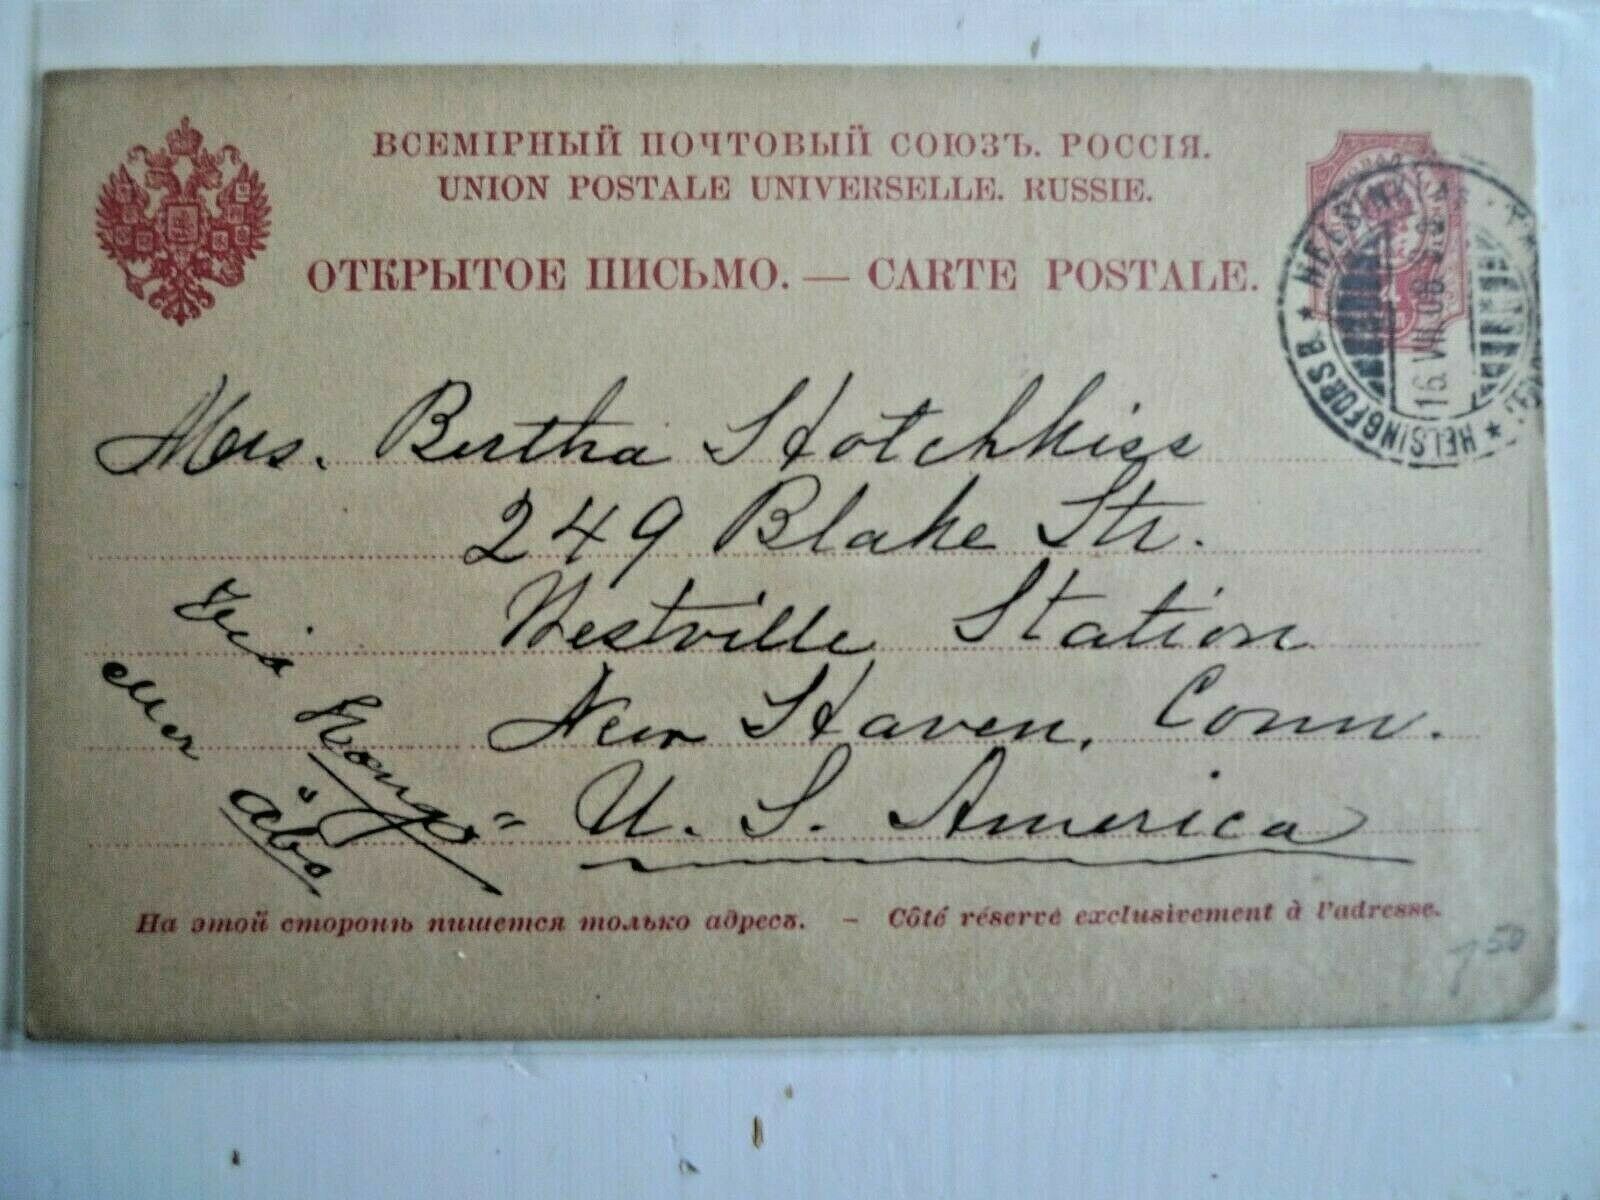 ВСЕМІРНЫЙ ПОЧТОВЫЙ СОЮЗЪ. РОССІЯ.
UNION POSTALE UNIVERSELLE. RUSSIE.
ОТКРЫТОЕ ПИСЬМО. — CARTE POSTALE.
HELSINGFORS
16.VII.08
Mrs. Bertha Hotchkiss
249 Blake Str.
Westville Station
New Haven, Conn.
U. S. America
Via Hangö
eller Åbo
На этой сторонѣ пишется только адресъ. — Côté réservé exclusivement à l'adresse.
1 50